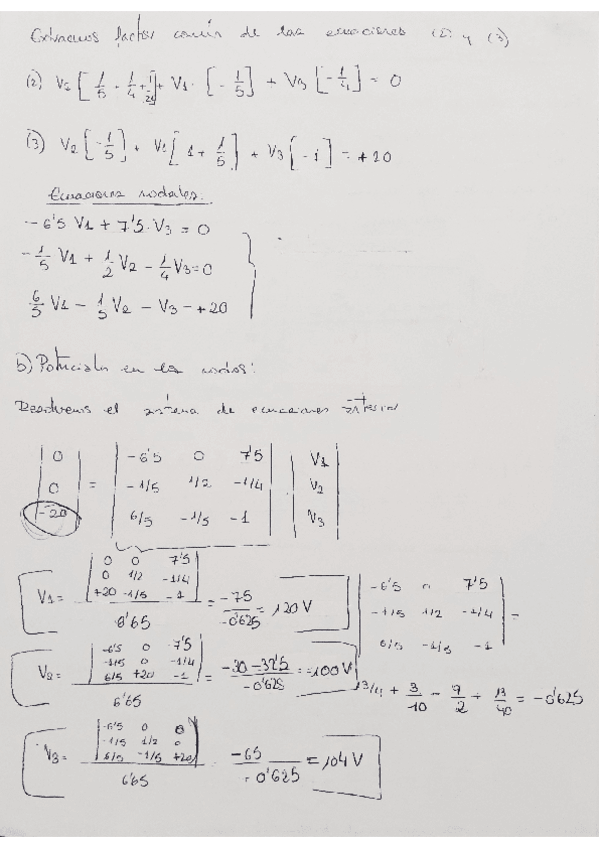 Extraemos factor común de las ecuaciones (2) y (3)
(2) V2 [1/5 + 1/4 + 1/20] + V1 · [-1/5] + V3 [-1/4] = 0
(3) V2 [-1/5] + V1 [1 + 1/5] + V3 [-1] = +20
Ecuaciones nodales:
-6'5 V1 + 7'5 · V3 = 0
-1/5 V1 + 1/2 V2 - 1/4 V3 = 0
6/5 V1 - 1/5 V2 - V3 = +20
b) Potenciales en los nodos:
Resolvemos el sistema de ecuaciones
| 0 | = | -6'5 0 7'5 | | V1 |
| 0 | | -1/5 1/2 -1/4 | | V2 |
| -20 | | 6/5 -1/5 -1 | | V3 |
V1 = | 0 0 7'5 | = -75 / -0'625 = 120 V
| 0 1/2 -1/4 |
| +20 -1/5 -1 |
6'65
| -6'5 0 7'5 |
| -1/5 1/2 -1/4 | =
| 6/5 -1/5 -1 |
V2 = | -6'5 0 -7'5 | = -30 - 32'5 / -0'625 = 100 V
| -1/5 0 -1/4 |
| 6/5 +20 -1 |
6'65
13/4 + 3/10 - 9/2 + 13/40 = -0'625
V3 = | -6'5 0 0 | -65 / -0'625 = 104 V
| -1/5 1/2 0 |
| 6/5 -1/5 +20 |
6'65